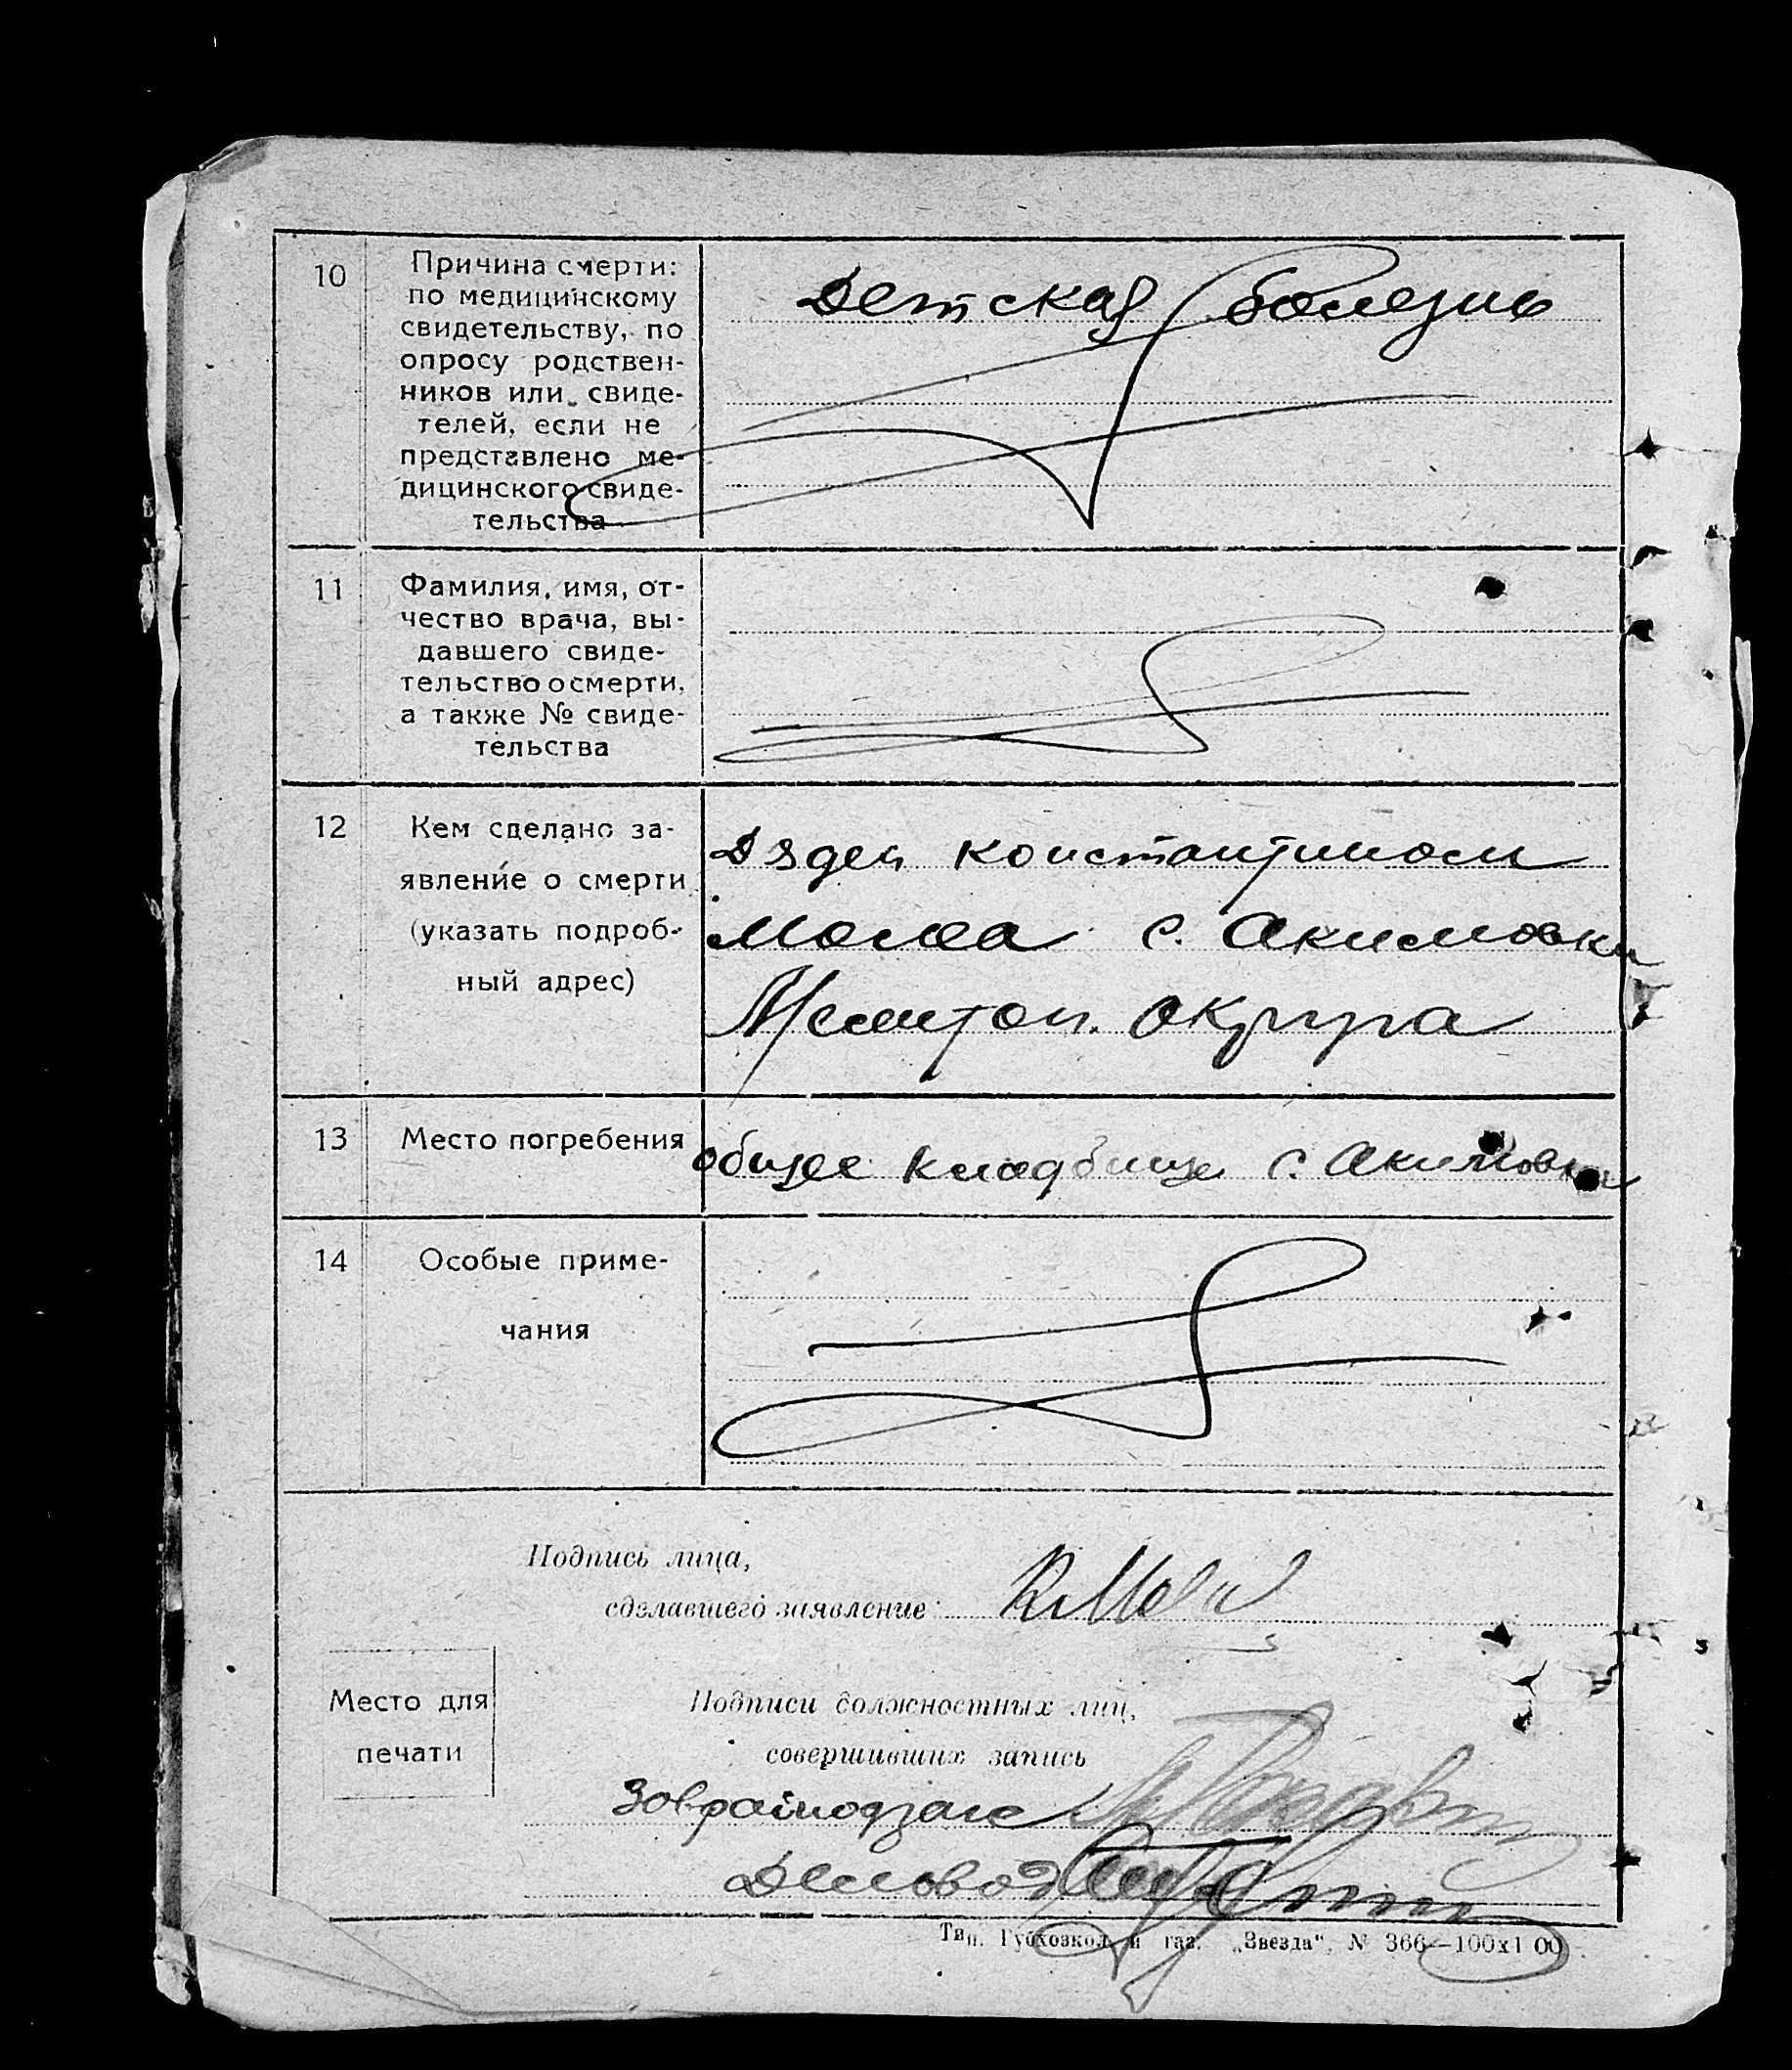 10
Причина смерти:
по медицинскому
свидетельству, по
опросу родствен-
ников или свиде-
телей, если не
представлено ме-
дицинского свиде-
тельства
Детская болезнь
11
Фамилия, имя, от-
чество врача, вы-
давшего свиде-
тельство о смерти,
а также № свиде-
тельства
12
Кем сделано за-
явление о смерти
(указать подроб-
ный адрес)
Дядей Константином
с. Акимовки
Мелитоп. округа
13
Место погребения
общее кладбище с. Акимовки
14
Особые приме-
чания
Подпись лица,
сделавшего заявление:
Место для
печати
Подписи должностных лиц,
совершивших запись
Заврайподзагс
Деловод
Тип. Губхозкол. и газ. „Звезда“, № 366—100х1 00